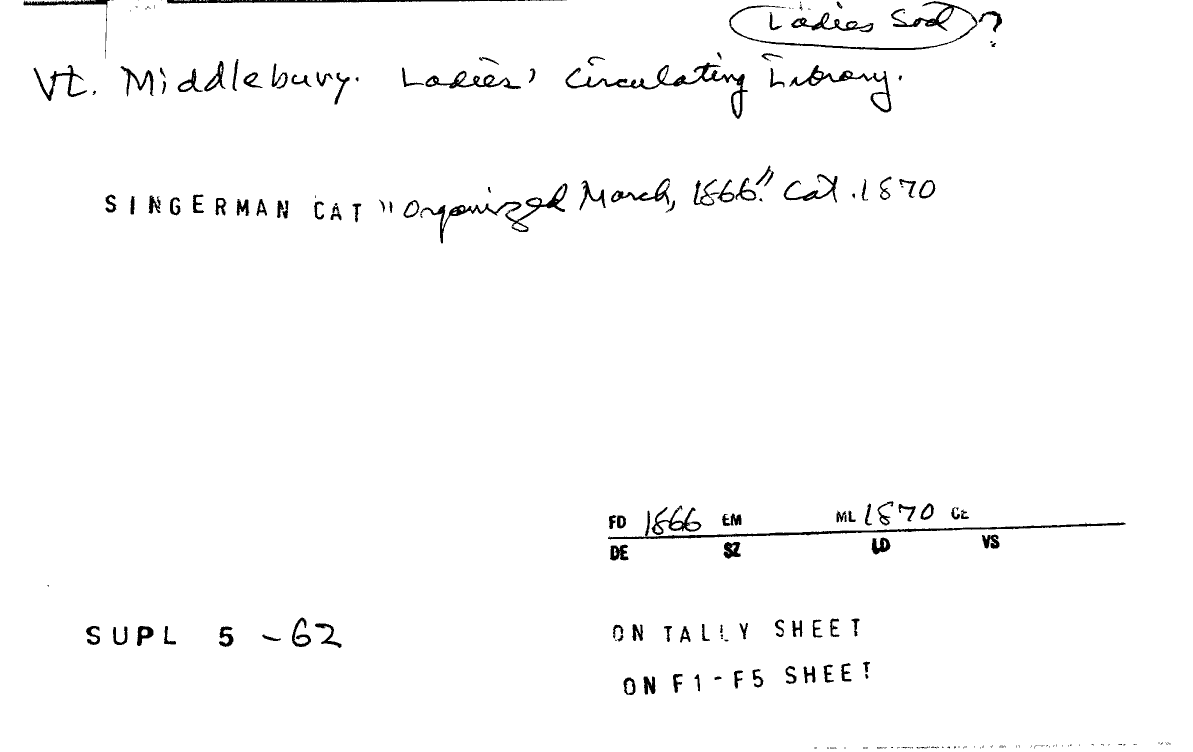 Ladies Socl ?
Vt. Middlebury. Ladies' Circulating Library.
SINGERMAN CAT "Organized March, 1866." Cat. 1870
FD 1866 EM ML 1870 CE
DE SZ LD VS
SUPL 5 - 62
ON TALLY SHEET
ON F1-F5 SHEET